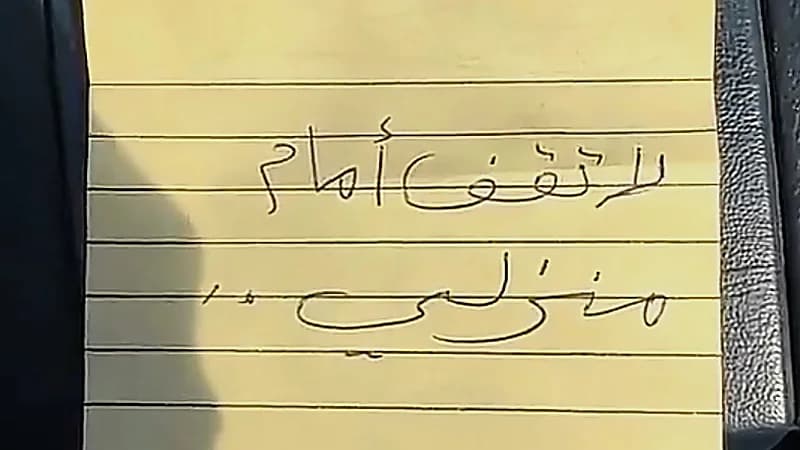 لا تقف أمام
منزلي ,,